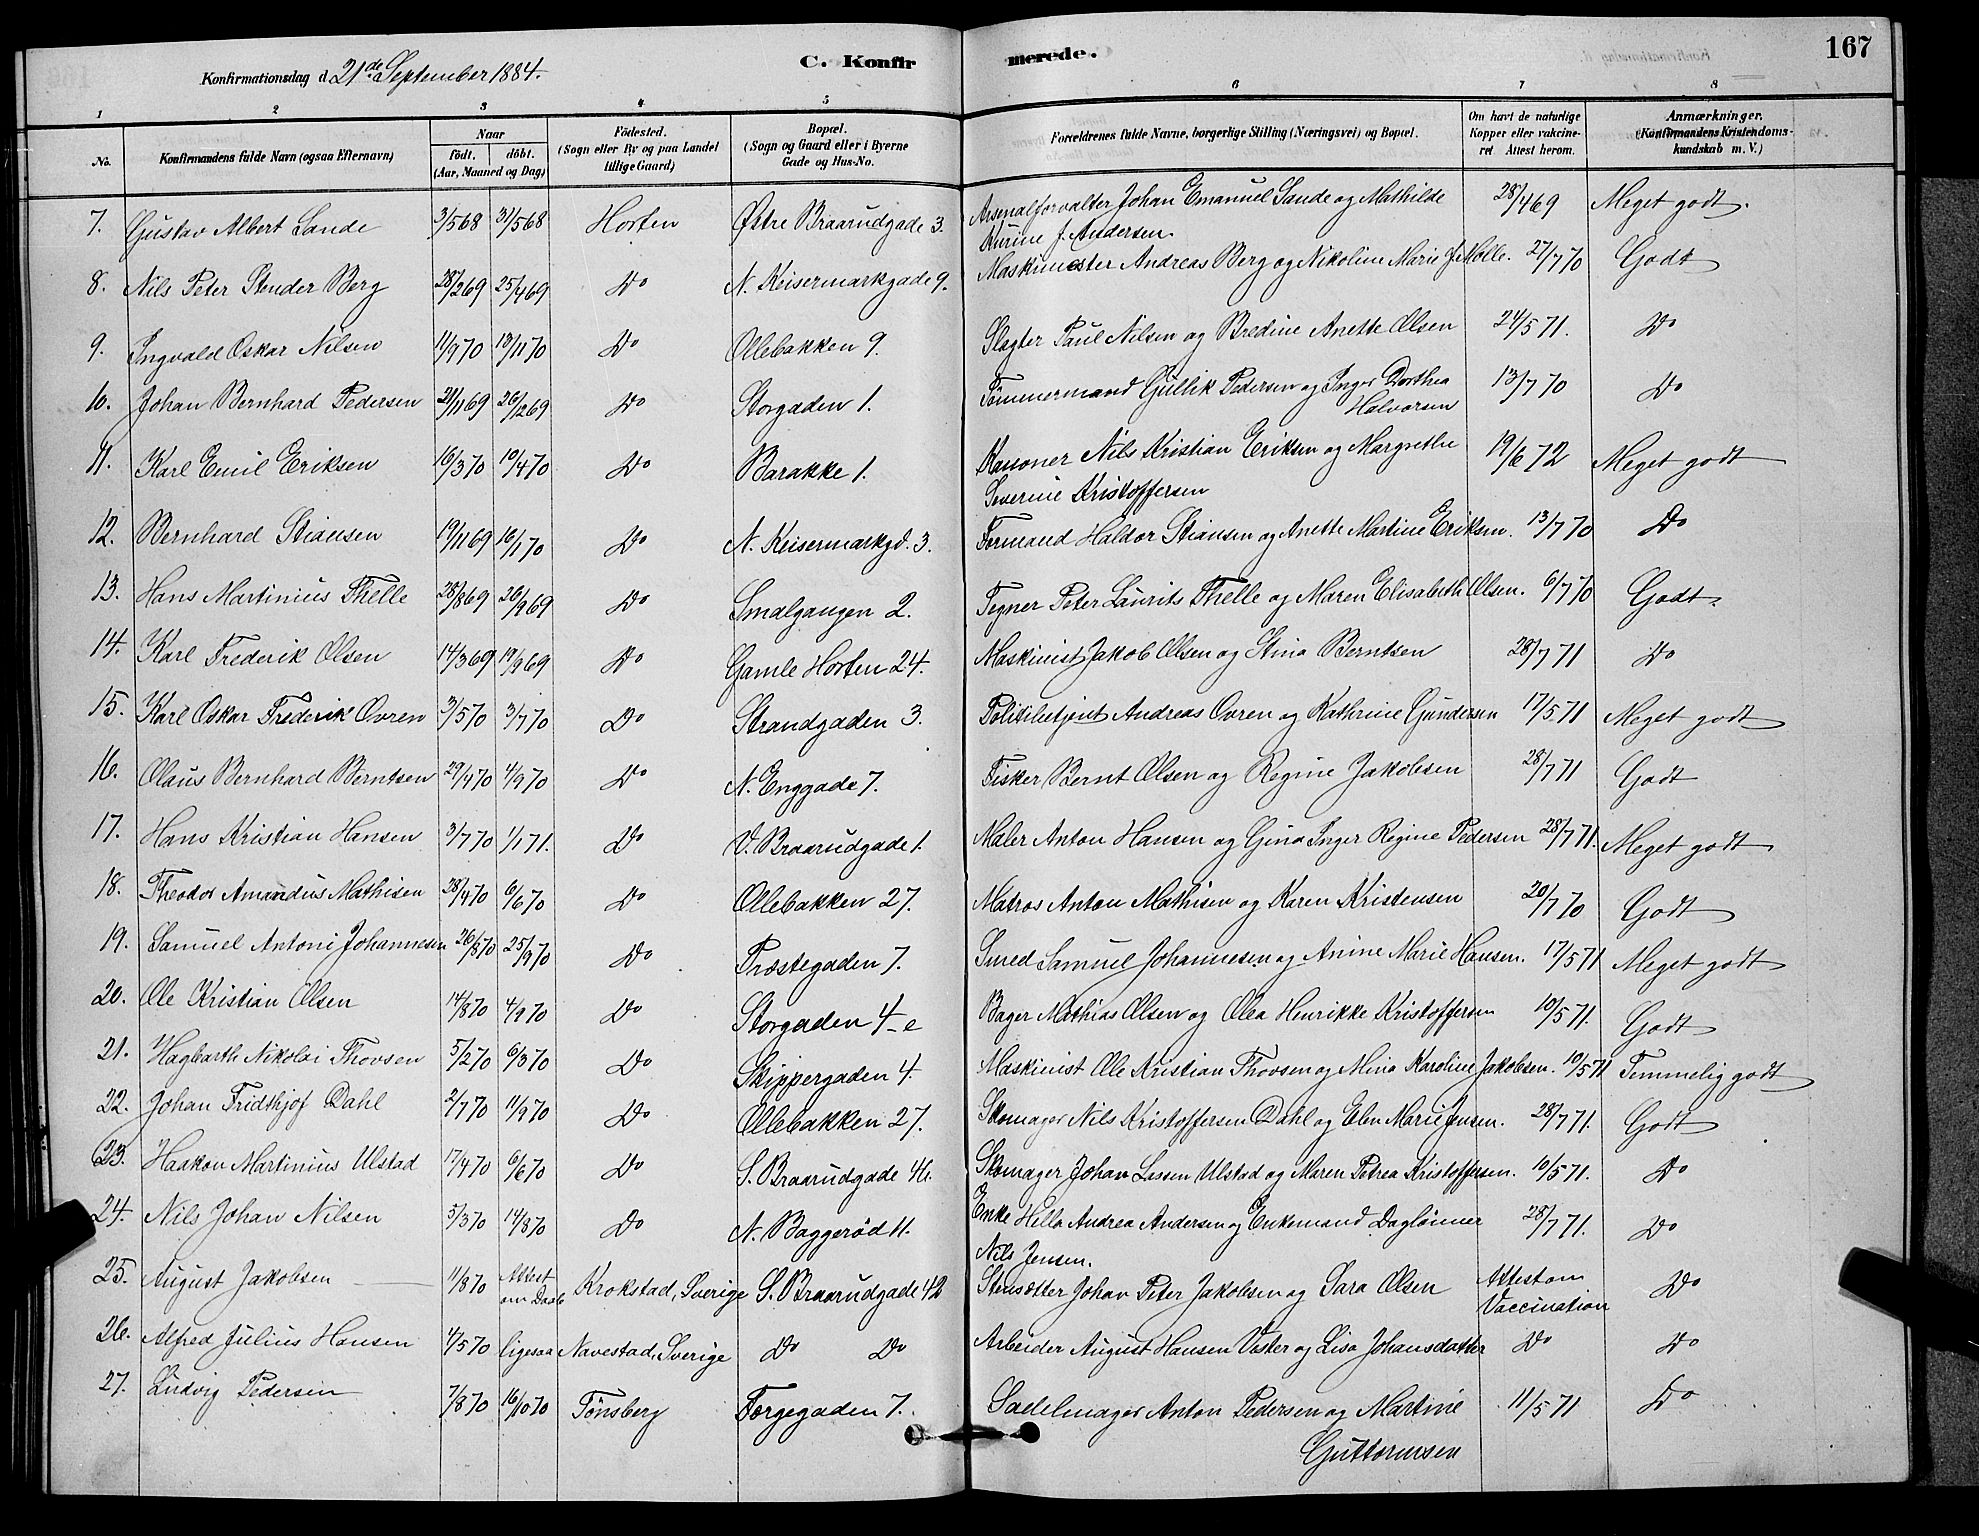 Konfirmationsdag d. 21de September 1884. C. Konfirmerede. 167
1 2 3 4 5 6 7 8
No. Konfirmandens fulde Navn (ogsaa Efternavn) Naar født. døbt. (Aar, Maaned og Dag) Fødested. (Sogn eller By og paa Landet tillige Gaard) Bopæl. (Sogn og Gaard eller i Byerne Gade og Hus-No. Forældrenes fulde Navne, borgerlige Stilling (Næringsvei) og Bopæl. Om havt de naturlige Kopper eller vakcineret. Attest herom. Anmærkninger. (Konfirmandens Kristendomskundskab m. V.)
7. Gustav Albert Sande 3/5 68 31/5 68 Horten Østre Braarudgade 3. Arsenalforvalter Johan Emanuel Sande og Mathilde 28/4 69 Meget godt.
Kurine f. Andersen.
8. Nils Peter Stender Berg 28/2 69 25/4 69 Do N. Keisermarkgade 9. Maskinmester Andreas Berg og Nikoline Marie f. Mølle. 27/7 70 Godt
9. Ingvald Oskar Nilsen 11/9 70 13/11 70 Do Ollebakken 9. Slagter Paul Nilsen og Bredine Anette Olsen 24/5 71. Do
10. Johan Bernhard Pedersen 21/11 69 26/12 69 Do Storgaden 1. Tømmermand Gullik Pedersen og Inger Dorthea 13/7 70 Do
Halvorsen
11. Karl Emil Eriksen 16/3 70 10/4 70 Do Barakke 1. Kanoner Nils Kristian Eriksen og Margrethe 19/6 72 Meget godt
Severine Kristoffersen
12. Bernhard Stiansen 19/11 69 16/1 70 Do N. Keisermarkgd. 3. Formand Haldor Stiansen og Anette Martine Eriksen. 13/7 70 Do
13. Hans Martinius Thelle 28/8 69 26/9 69 Do Smalgangen 2. Tegner Peter Laurits Thelle og Maren Elisabeth Olsen. 6/7 70 Godt.
14. Karl Frederik Olsen 14/3 69 19/9 69 Do Gamle Horten 24. Maskinist Jakob Olsen og Stina Berntsen 28/7 71 Do
15. Karl Oskar Frederik Ovren 3/5 70 3/7 70 Do Strandgaden 3. Politibetjent Andreas Ovren og Kathrine Gundersen 17/5 71 Meget godt
16. Olaus Bernhard Berntsen 29/4 70 4/9 70 Do N. Enggade 7. Fisker Bernt Olsen og Regine Jakobsen 28/7 71 Godt
17. Hans Kristian Hansen 3/7 70 1/1 71. Do V. Braarudgade 1. Maler Anton Hansen og Gina Inger Regine Pedersen 28/7 71. Meget godt
18. Theodor Amandus Mathisen 28/4 70 6/6 70 Do Ollebakken 27. Matros Anton Mathisen og Karen Kristensen 20/7 70 Godt
19. Samuel Antoni Johannesen 26/5 70 25/9 70 Do Præstegaden 7. Smed Samuel Johannesen og Anine Marie Hansen. 17/5 71 Meget godt
20. Ole Kristian Olsen 14/8 70 4/9 70 Do Storgaden 4-e Bager Mathias Olsen og Olea Henrikke Kristoffersen 10/5 71. Godt
21. Hagbarth Nikolai Thovsen 5/2 70 6/3 70 Do Skippergaden 4. Maskinist Ole Kristian Thovsen og Mina Karoline Jakobsen. 10/5 71 Temmelig godt
22. Johan Fridthjof Dahl 2/7 70 11/9 70 Do Ollebakken 27. Skomager Nils Kristoffersen Dahl og Elen Marie Jensen. 28/7 71. Godt
23. Haakon Martinius Ulstad 17/4 70 6/6 70 Do S. Braarudgade 41. Skomager Johan Lassen Ulstad og Maren Petrea Kristoffersen. 10/5 71. Do
24. Nils Johan Nilsen 5/3 70 14/8 70 Do N. Baggerød 11. Enke Hella Andrea Andersen og Enkemand Dagløнner 28/7 71. Do
Nils Jensen.
25. August Jakobsen 11/8 70 Attest om Daab Krokstad, Sverige S. Braarudgade 42 Stensætter Johan Peter Jakobsen og Sara Olsen Attest om Vaccination Do
26. Alfred Julius Hansen 4/5 70 ligesaa Navestad, Sverige Do Do Arbeider August Hansen Vaster og Lisa Johansdatter Do Do
27. Ludvig Pedersen 7/8 70 16/10 70 Tønsberg Torgegaden 7. Sadelmager Anton Pedersen og Martine 11/5 71 Do
Guttormsen